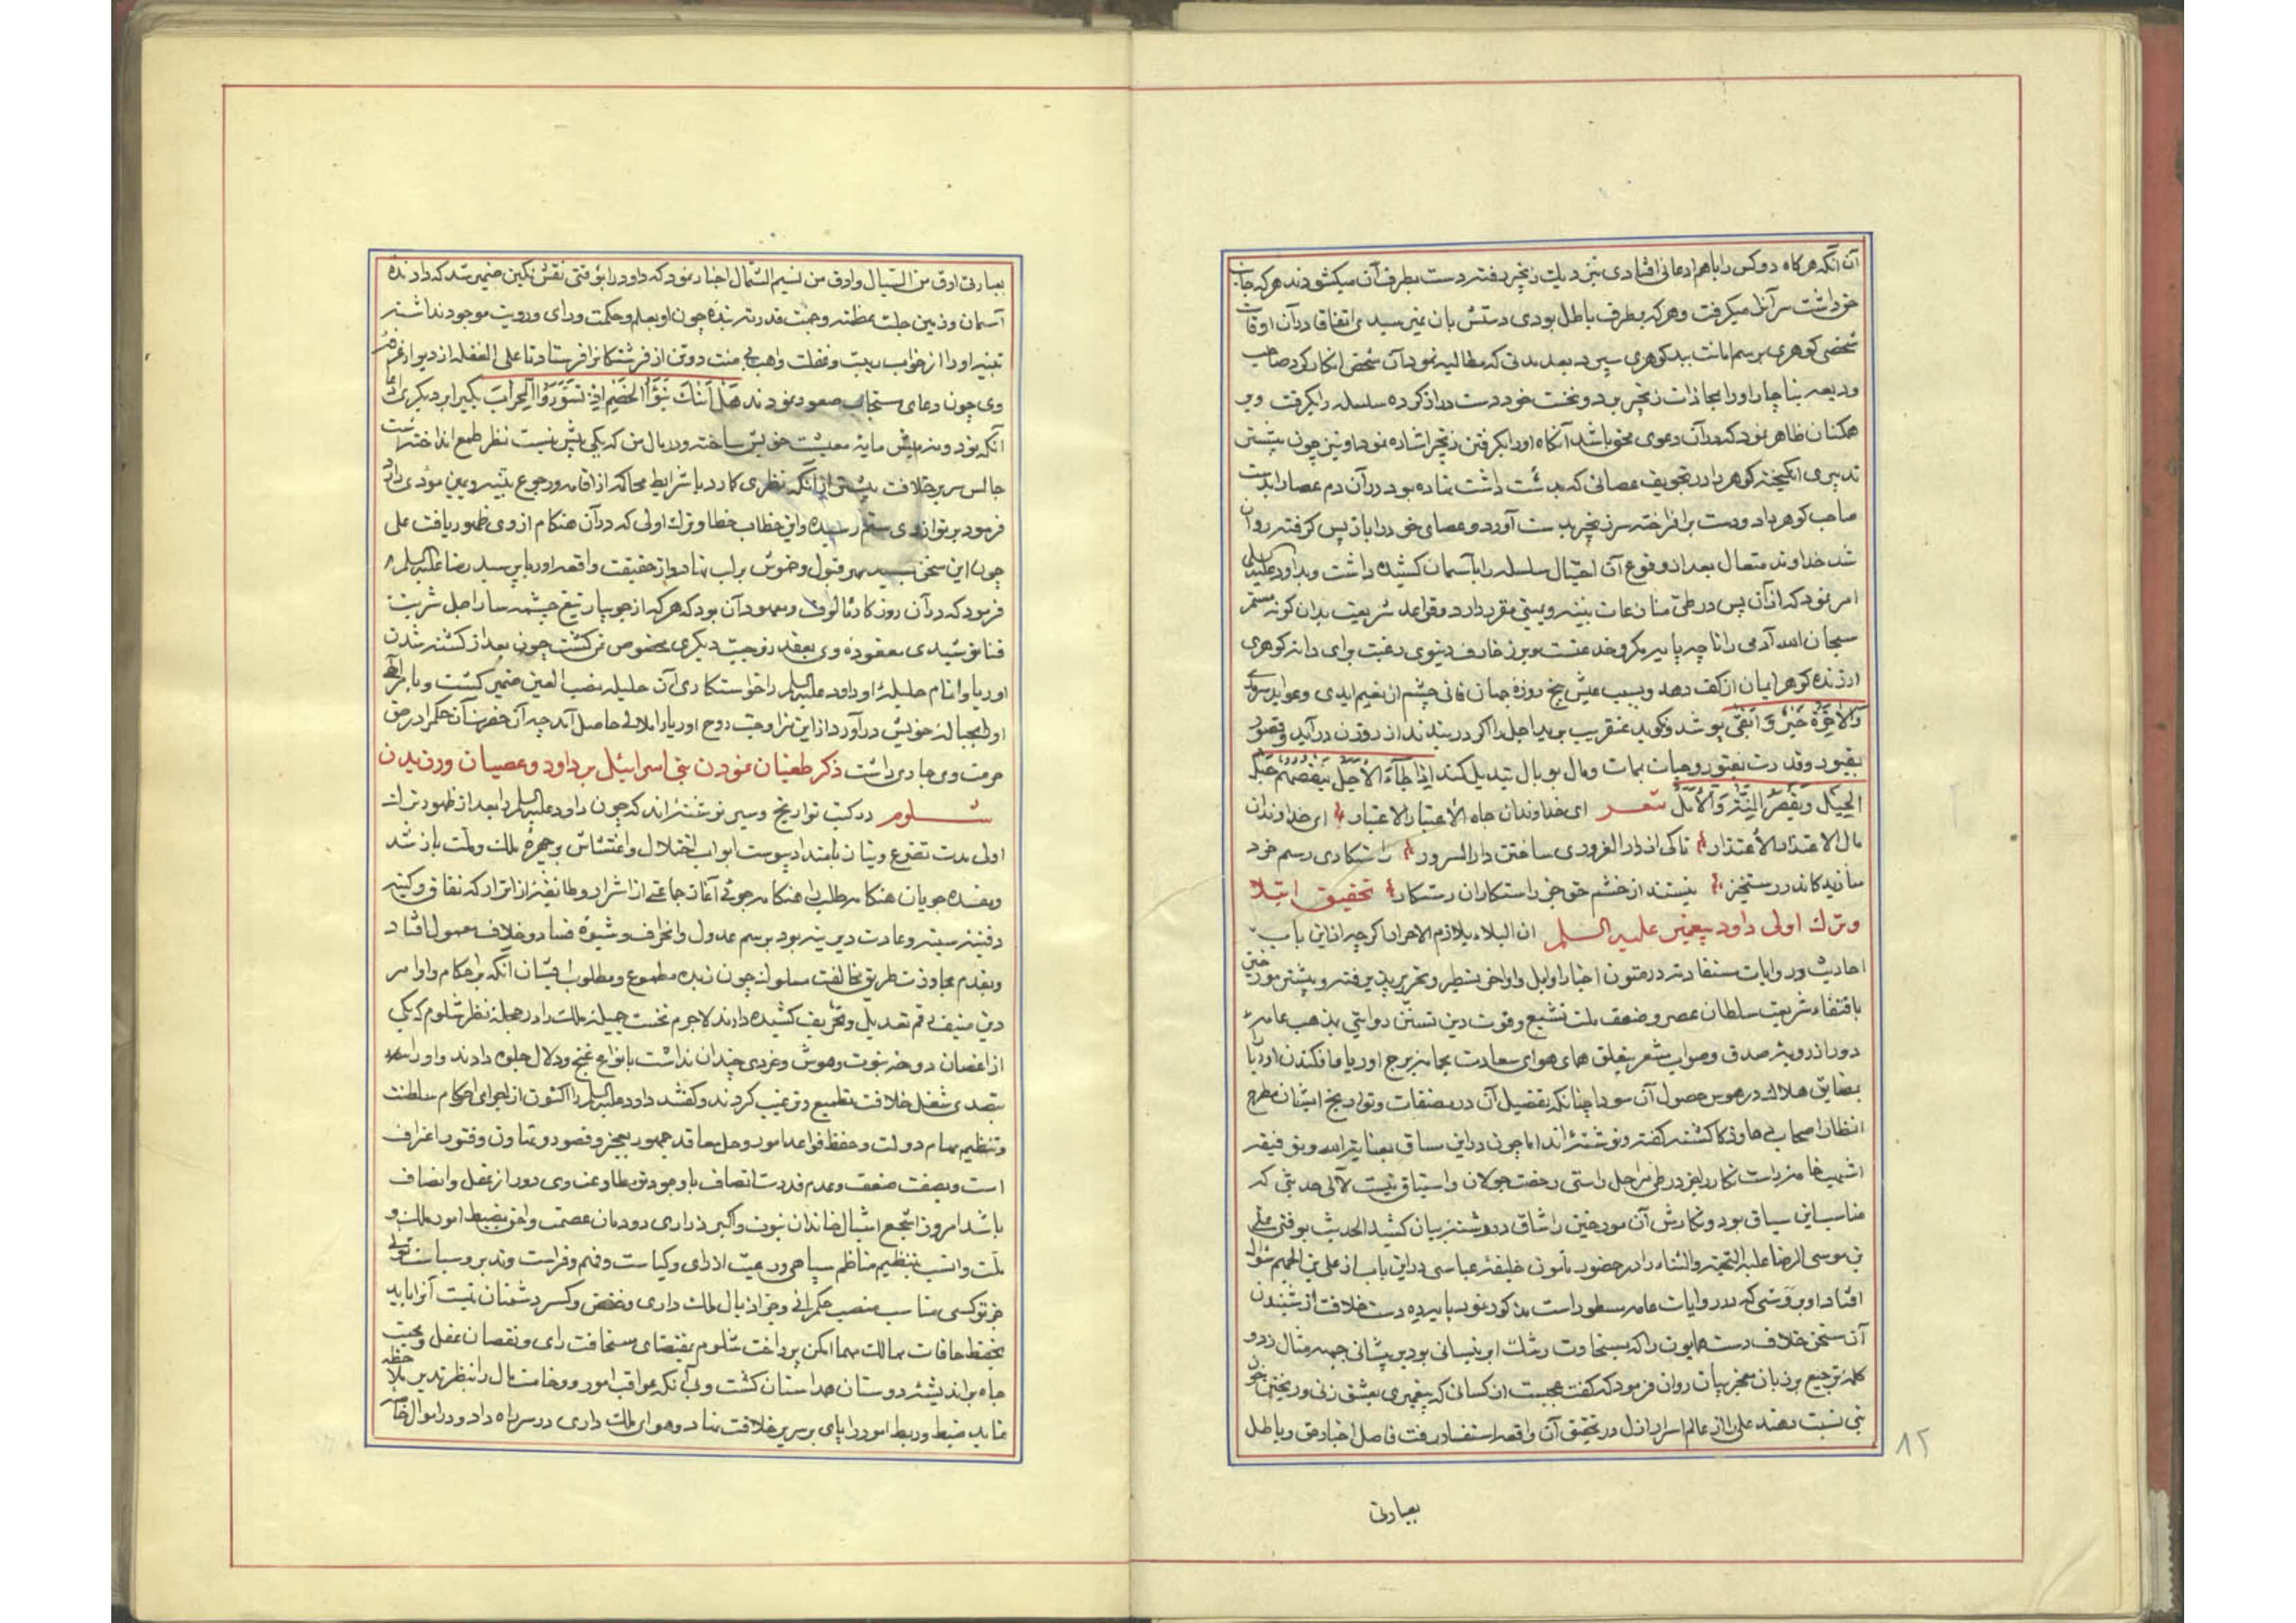 آن آنکه هرکاه دوکس را باهم ادعائی افتادی بنزدیک زنجیر رفته دست بطرف آن میکشودند هرکه جانب
حق داشت سر آنرا میکرفت وهرکه بطرف باطل بودی دستش بان نمیرسیدی اتفاقا درآن اوقات
شخصی کوهری برسم امانت بدکوهری سپرد بعد مدتی که مطالبه نمود آن شخص انکار کرد صاحب
ودیعه بناچار اورا بمحاذات زنجیر برد ونخست خود دست دراز کرده سلسله را بکرفت وبر
همکنان ظاهر نمود که درآن دعوی محق باشد آنکاه اورا بکرفتن زنجیر اشاره نمود واو نیز چون پیشتر
تدبیری انکیخته کوهر را در تجویف عصائی که بدست داشت نهاده بود درآن دم عصا را بدست
صاحب کوهر داد ودست برافراخته سر زنجیر بدست آورد وعصای خود را باز پس کرفته روان
شد خداوند متعال بعد از وقوع آن احتیال سلسله را بآسمان کشیده داشت وبداود علیه السلام
امر نمود که ازآن پس در طی منازعات بینه ویمینی مقرر دارد وقواعد شریعت بدان کونه مستمر
سبحان الله آدمی را تا چه پایه مکر وخدعتست وبر زخارف دنیوی رغبت برای دانه کوهری
ارزنده کوهر ایمان از کف دهد وبسبب عیش پنج روزه جهان فانی چشم از نعیم ابدی وعواید سرمدی
وَالآخِرَةُ خَیرٌ وَأبقی بپوشد ونکوید عنقریب برید اجل را اکر در ببندند از روزن درآید وقصور
بقبور وقدرت بفتور وحیات بممات ومال بوبال تبدیل کند اِذا جاءَ الأجَلُ یَنقَصُّهُ حَبلُ
الحِیَل وَیَقصُرُ النَّظَر وَالأمَلُ شعر ای خداوندان جاه الأعتبار الاعتبار ای خداوندان
مال الاعتذار الأعتذار تاکی از دار الغروری ساختن دار السرور راستکاری رسم خود
سازید کاندر رستخیز نیستند از خشم حق جز راستکاران رستکار تحقیق ابتلا
وترك اولی داود پیغمبر علیه السلم ان البلاء یلازم الاحرار اکرچه از این باب
احادیث وروایات مستفاد در متون اخبار اوایل واواخر بتسطیر وتحریر پذیرفته وپیشتر مورخین
باقتضاء شریعت سلطان عصر وضعف ملت تشیع وقوت دین تسنن روایتی بمذهب عامه
دور از رویه صدق وصواب مشعر بتعلق همای هوای سعادت بجانب برج اوریا وافکندن اوریا
بمضایق هلاك در هوس حصول آن سودا چنانکه تفصیل آن در مصنفات وتواریخ ایشان مطرح
انظار اصحاب کشته کفته ونوشته‌اند اما چون در این سیاق بعنایة الله وتوفیقه
مناسب این سیاق بود ونکارش آن مورخین را شاق در رشته بیان کشید الحدیث بوقتی علی
بن موسی الرضا علیه التحیة والثناء را در حضور مأمون خلیفه عباسی در این باب از علی بن الجهم سؤال
افتاد او بروشی که در روایات عامه مسطور است مذکور نمود
آن سخن خلاف دست همایون را که بسخاوت رشك ابر نیسانی بود بر پیشانی جبهه مثال زد و
کلمه ترجیع بر زبان معجز بیان روان فرمود که کفت عجبست از کسانی که پیغمبری بعشق زنی وریختن خون
نبی نسبت دهند علی از عالم اسرار ازل در تحقیق آن واقعه استفسار رفت فاصل اخبار حق وباطل
۸۲
بعبارتی
بعبارتی ارق من السیال وادق من نسیم الشمال اخبار نمود که داود را بوقتی نقش نکین ضمیر شد که دارنده
آسمان وزمین جلت عظمته وجهت قدرته بنده چون او بعلم وحکمت ورای ورویت موجود نداشته
تنبیه اورا از خواب ریبت وغفلت واهب بی منت دو تن از فرشتکان را فرستاد تا علی الغفله از دیوار غرفه
وی چون دعای مستجاب صعود نمودند هَل أَتٰكَ نَبَؤُا الخَصمِ اِذ تَسَوَّرُوا المِحرابَ یکی را بر دیکری ادعا
آنکه نود ونه میش مایه معیشت خویش ساخته ودر مال من که یکی بیش نیست نظر طمع انداخته است
جالس سریر خلافت پیشتر از آنکه نظری کارد با شرایط محاکمه از اقامه ورجوع بینه ویمین مؤدی دارد
فرمود بر تو از وی ستم رسیده واین خطاب خطا وترك اولی که درآن هنکام از وی ظهور یافت علی
چون این سخن بسید مهر قبول وخموش بر لب نهاد واز حقیقت واقعه اوریا پرسید رضا علیه السلام
فرمود که درآن روزکار مألوف ومعهود آن بود که هرکه از جویبار تیغ چشمه سار اجل شربت
فنا نوشیدی معقوده وی بعقد زوجیت دیکری مخصوص نمی کشت چون بعد از کشته شدن
اوریا واتمام حلیله او داود علیه السلم را خواستکاری آن حلیله نصب العین ضمیر کشت وبامر آله
اورا بحباله خویش درآورد از این مزاوجت روح اوریا را ملالی حاصل آمد چه آن حضرت آن حکم را در حق
حرمت وی جاری داشت ذکر طغیان نمودن بنی اسرائیل بر داود وعصیان ورزیدن
شلوم در کتب تواریخ وسیر نوشته‌اند که چون داود علیه السلم را بعد از ظهور ترك
اولی مدت تضرع وینان بامتداد پیوست ابواب اختلال واغتشاش بر چهره ملك وملت باز شد
ومفسده جویان هنکامه طلب را هنکامه جوئی آغاز جماعتی از اشرار وطایفه از اتراد که نفاق وکینه
دفینه سینه وعادت دیرینه بود برسم عدول وانحراف وشیوه فساد وخلاف معمول افتاد
وبقدم مجاوزت طریق مخالفت مسلوك چون زبده مطبوع ومطلوب ایشان آنکه بر احکام واوامر
دین منیف رقم تعدیل وتحریف کشیده دارند لاجرم نخست جمیله ملك را در حجله نظر شلوم که یکی
از اغصان دوحه نبوت وهوش وخردی چندان نداشت بانواع غنج ودلال جلوه دادند واورا
بتصدی شغل خلافت تطمیع وترغیب کردند وکفتند داود علیه السلم را اکنون از اجرای احکام سلطنت
وتنظیم مهام دولت وحفظ قواعد امور وحل معاقد جمهور بعجز وقصور وتهاون وفتور اعتراف
است وبصفت ضعف وعدم قدرت اتصاف باوجود تو مطاوعت وی دور از عقل وانصاف
باشد امروز اشجع اشبال خاندان نبوت واکبر ذراری دودمان عصمت واحق بضبط امور ملك و
ملت وانسب بتنظیم مناظم سپاهی ورعیت از رای وکیاست وفهم وفراست وتدبیر وسیاست توئی
جز تو کسی مناسب منصب حکمرانی ودر خور یال ملك داری وخفض وکسر دشمنان نیست آنرا باید
بحفظ حافات ممالك مهما امکن پرداخت شلوم بمقتضای سخافت رای ونقصان عقل ومحبت
جاه براندیشه دوستان همداستان کشت وبی آنکه عواقب امور ووخامت مال را بنظر تدبیر ملاحظه
نماید ضبط وربط امور را پای بر سریر خلافت نهاد وهوای ملك داری در سر راه داد ودر اموال خاصه